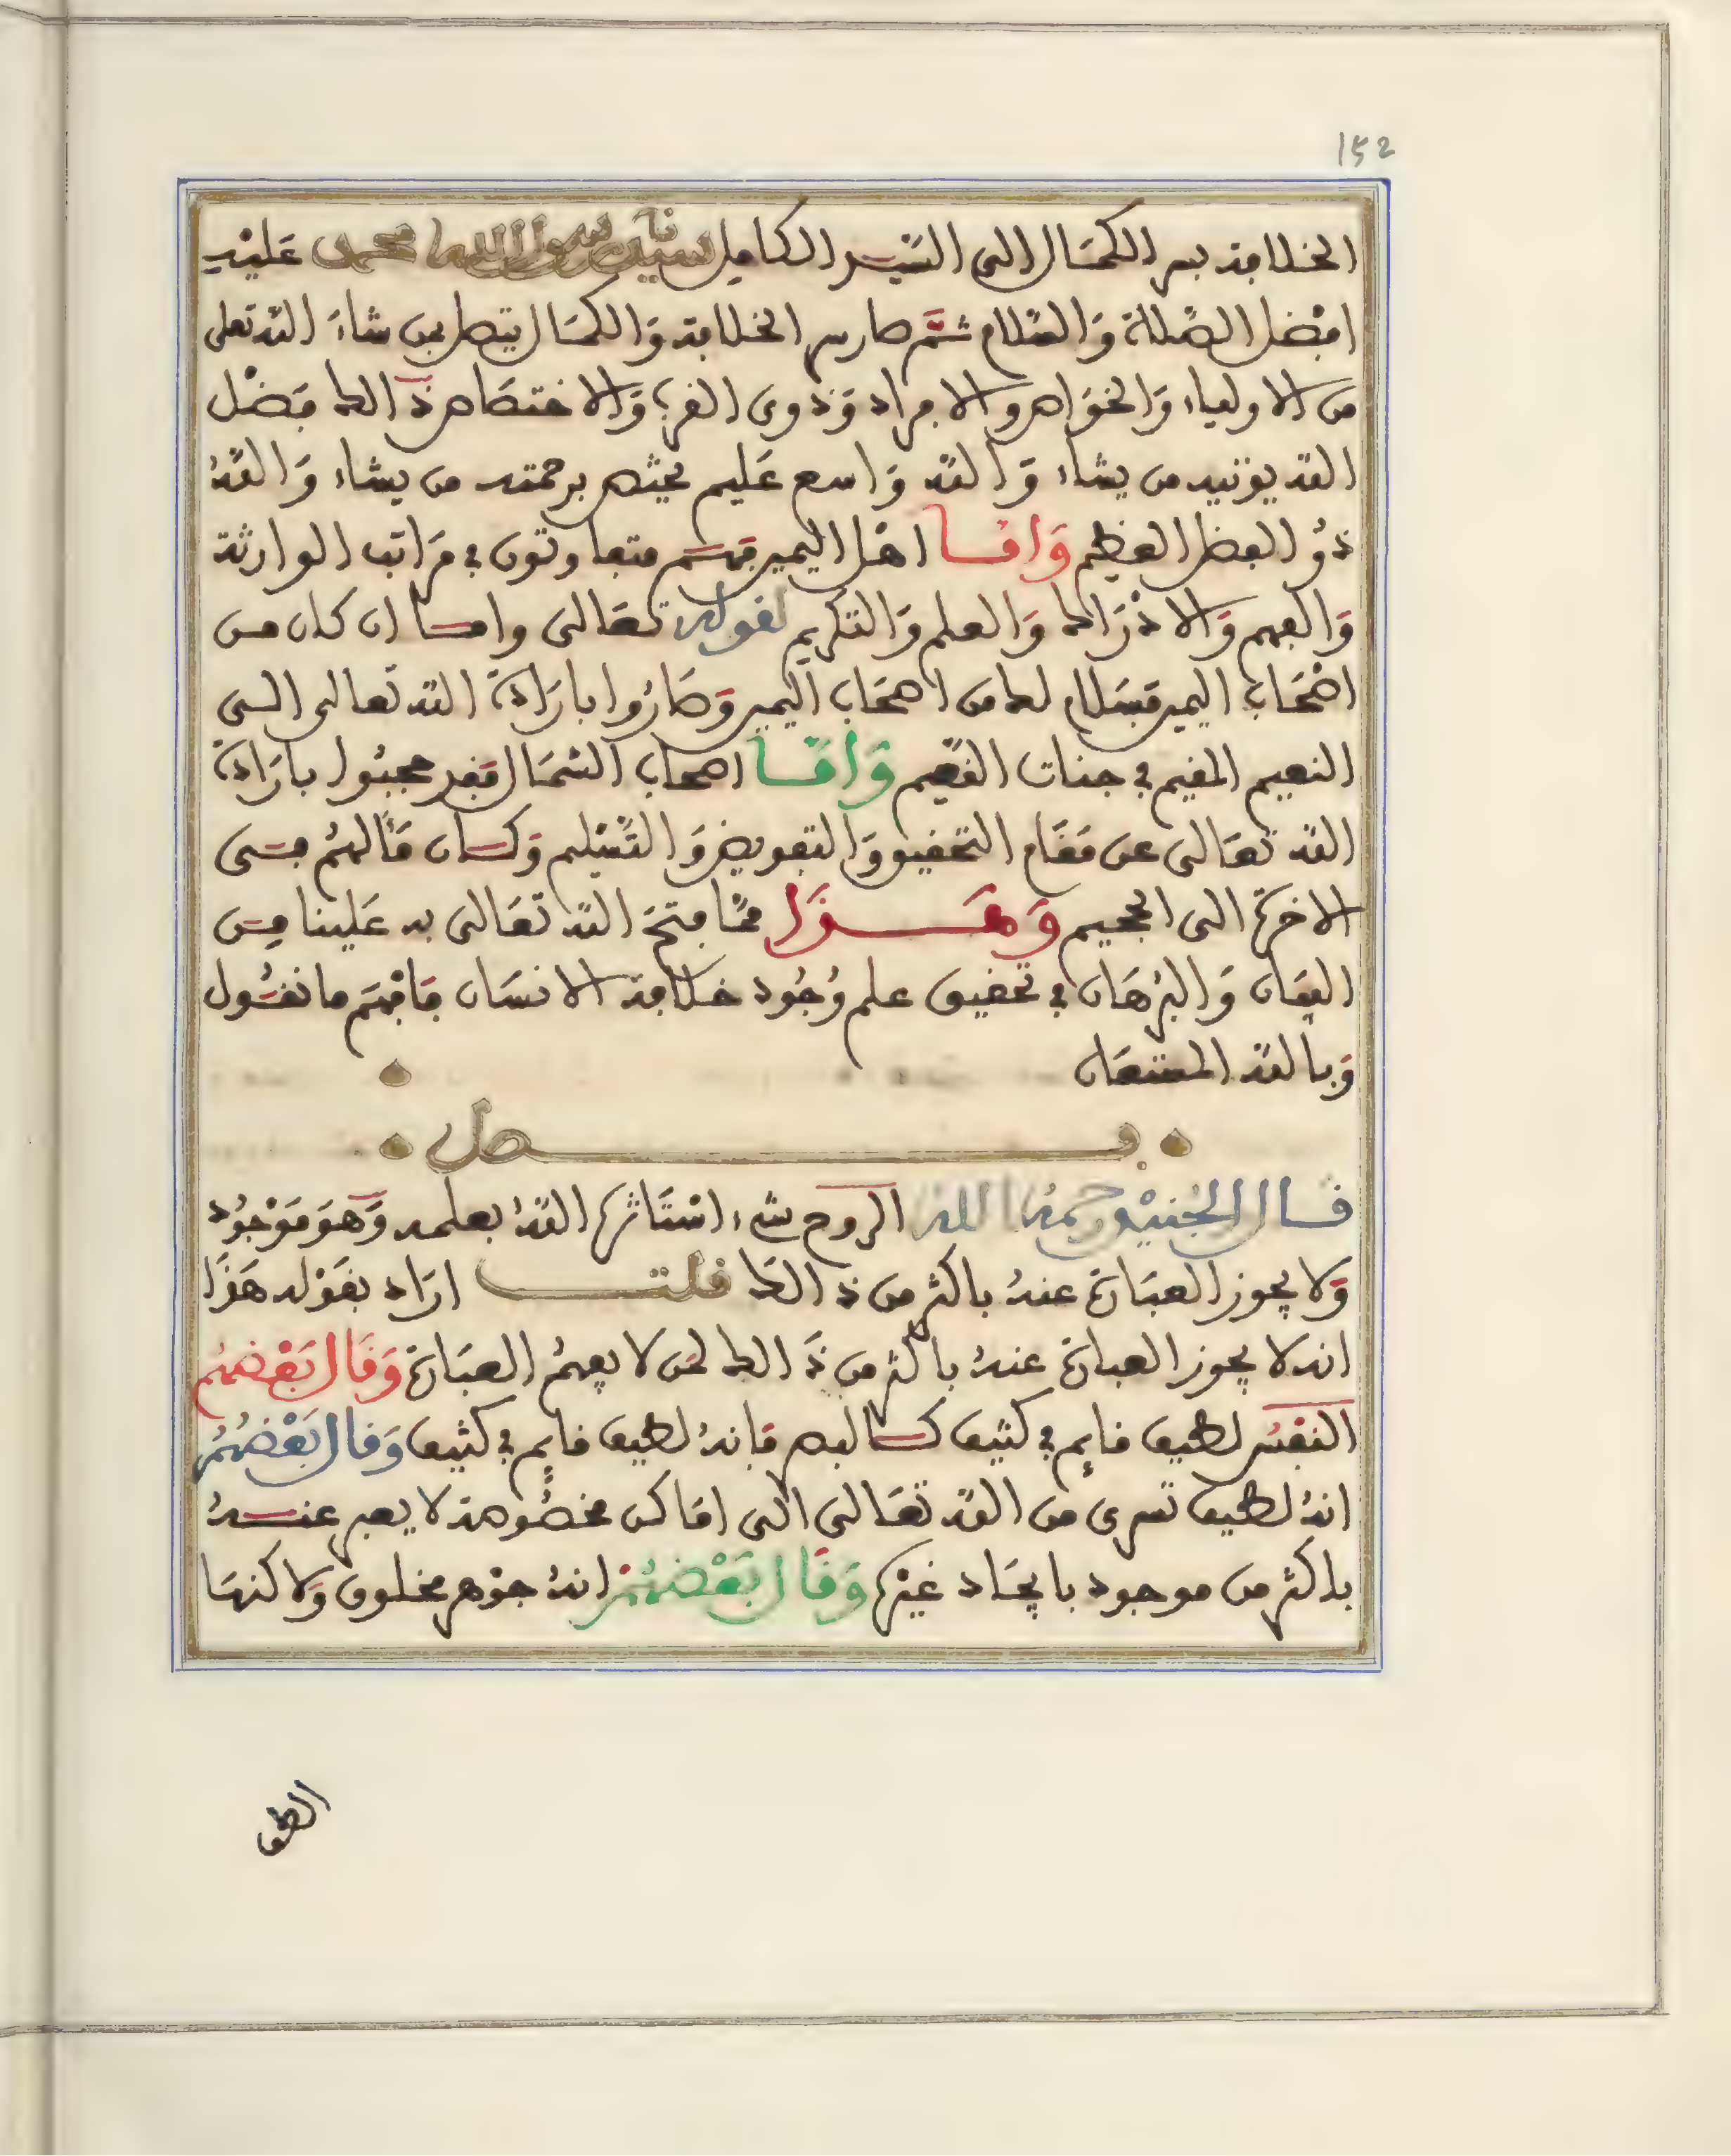 152
الخلافة بسر الكمال الى السيد الكامل سيدنا رسول الله محمد عليه
افضل الصلاة والسلام ثم صار سر الخلافة والكمال يتصل بمن شاء الله تعلى
من الاولياء والخواص والافراد وذوى القرب والاختصاص ذالك فضل
الله يوتيه من يشاء والله واسع عليم يختص برحمته من يشاء والله
ذو الفضل العظيم واما اهل اليمين فهم متفاوتون في مراتب الوارثة
والفهم والادراك والعلم والتكريم لقوله تعالى واما ان كان من
اصحاب اليمين فسلام لك من اصحاب اليمين وصاروا بارادة الله تعالى الى
النعيم المقيم في جنات النعيم واما اصحاب الشمال فقد حجبوا بارادة
الله تعالى عن مقام التحقيق والتفويض والتسليم وكان مالهم في
الاخرة الى الجحيم وهذا مما فتح الله تعالى به علينا من
البيان والبرهان في تحقيق علم وجود خلافة الانسان فافهم ما نقول
وبالله المستعان
فصل
قال الجنيد رحمه الله الروح شيء استاثره الله بعلمه وهو موجود
ولا يجوز العبارة عنه باكثر من ذالك قلت اراد بقوله هذا
انه لا يجوز العبارة عنه باكثر من ذالك لمن لا يفهم العبارة وقال بعضهم
النفس لطيف قايم في كثيف كالبصر فانه لطيف قايم في كثيف وقال بعضهم
انه لطيف تسرى من الله تعالى الى اماكن مخصوصة لا يعبر عنه
باكثر من موجود بايجاد غيره وقال بعضهم انه جوهر مخلوق ولاكنها
الطف